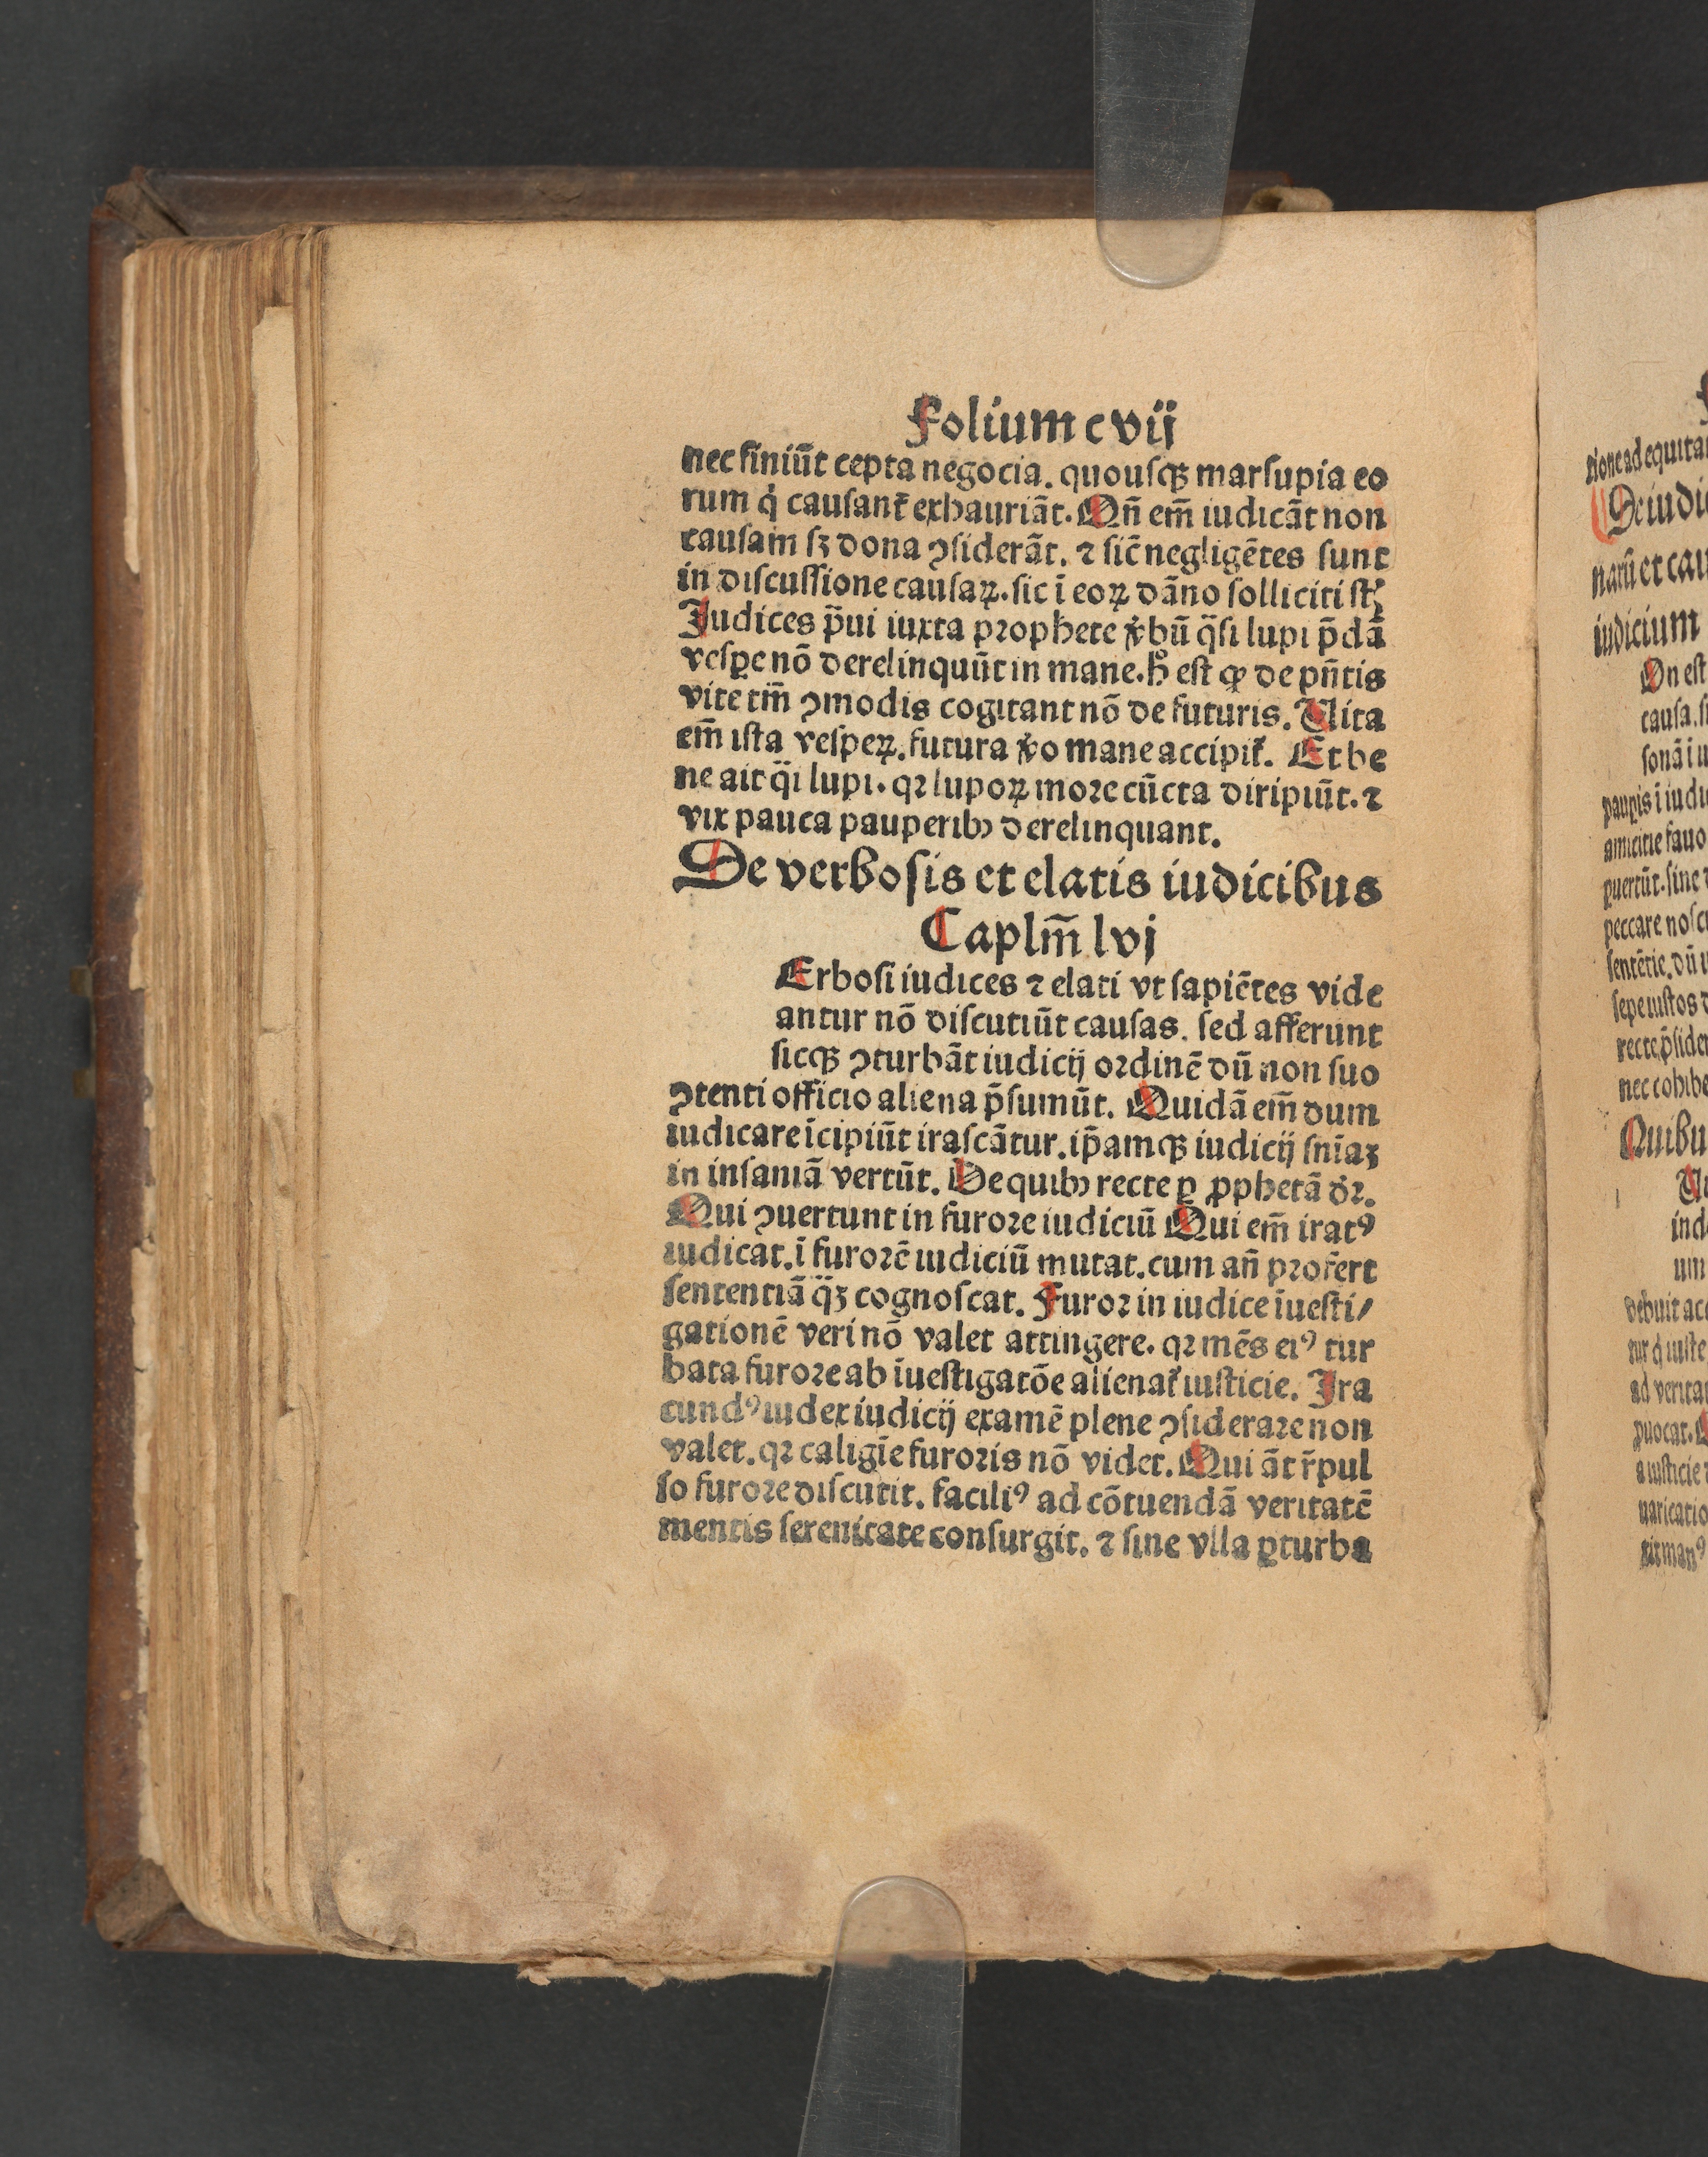 Folium cvij
nec finiūt cepta negocia. quouſqꝫ marſupia eo
rum q̇ cauſant᷑ exhauriāt. Qn̄ em̄ iudicāt non
cauſam ſꝫ dona ꝯſiderāt. ⁊ ſic̄ negligētes ſunt
in diſcuſſione cauſaꝝ. ſic ī eoꝝ dāno ſolliciti ſt̄
Judices p̄ui iuxta prophete v̓bū q̄ſi lupi p̄dā
veſꝑe nō derelinquūt in mane. hͦ eſt ꝙ de pn̄tis
vite tm̄ ꝯmodis cogitant nō de futuris. Uita
em̄ iſta veſpeꝝ. futura v̓o mane accipit᷑. Et be
ne ait q̄i lupi. qꝛ lupoꝝ moꝛe cūcta diripiūt. ⁊
vix pauca pauperibꝰ derelinquant.
De verboſis et elatis iudicibus
Caplm̄ lvj
Erboſi iudices ⁊ elati vt ſapiētes vide
antur nō diſcutiūt cauſas. ſed afferunt
ſicqꝫ ꝯturbāt iudicij oꝛdinē dū non ſuo
ꝯtenti officio aliena p̄ſumūt. Quidā em̄ dum
iudicare īcipiūt iraſcātur. ip̄amqꝫ iudicij ſnīaꝫ
in inſaniā vertūt. De quibꝰ recte ꝑ ꝓphetā dꝛ̄.
Qui ꝯuertunt in furoꝛe iudiciū Qui em̄ iratꝰ
iudicat. ī furoꝛē iudiciū mutat. cum an̄ pꝛofert
ſententiā q̄ꝫ cognoſcat. Furoꝛ in iudice īueſti/
gationē veri nō valet attingere. qꝛ mēs eiꝰ tur
bata furoꝛe ab īueſtigatōe alienat᷑ iuſticie. Ira
cundꝰ iudex iudicij examē plene ꝯſiderare non
valet. qꝛ caligīe furoꝛis nō videt. Qui āt r̄pul
ſo furoꝛe diſcutit. faciliꝰ ad cōtuendā veritatē
mentis ſerenitate conſurgit. ⁊ ſine vlla ꝑturba